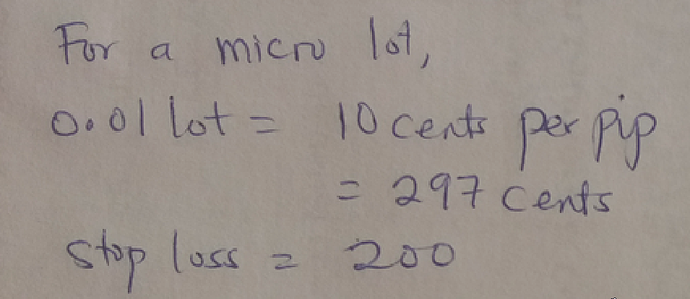 For a micro lot,
0.01 lot = 10 cents per pip
= 297 cents
stop loss = 200